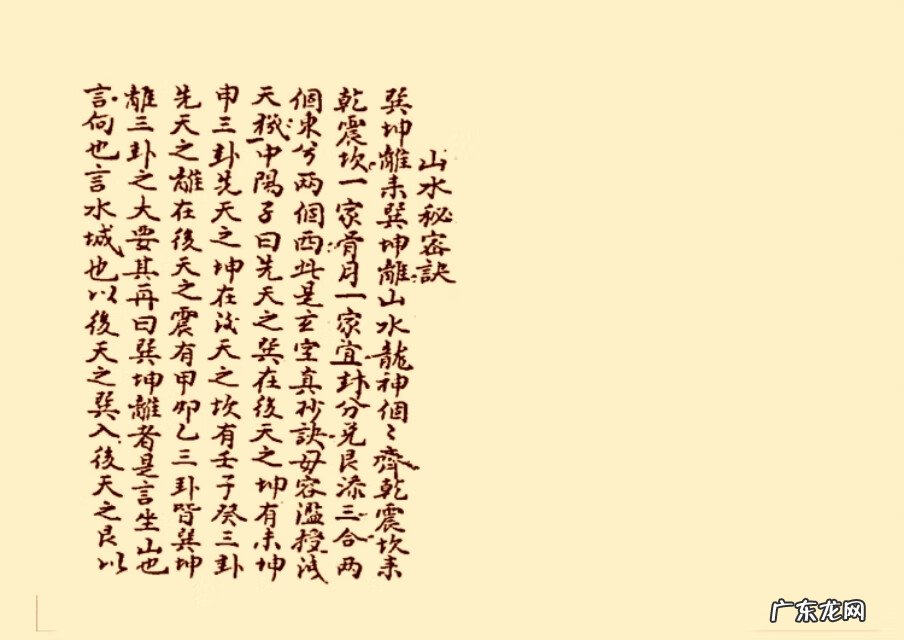 山水秘密訣
巽坤離来巽坤離山水龍神個〻齊乾震坎来
乾震坎一家骨月一家宜卦分兑艮添三合两
個東兮两個西此是玄空真妙訣毋容濫授洩
天機中陽子曰先天之巽在後天之坤有未坤
申三卦先天之坤在後天之坎有壬子癸三卦
先天之離在後天之震有甲卯乙三卦皆巽坤
離三卦之大要其再曰巽坤離者是言坐山也
言向也言水城也以後天之巽入後天之艮以
广东龙网